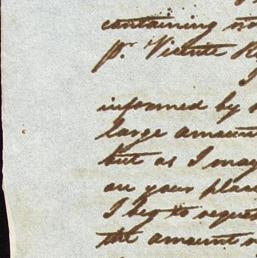 containing
pr. Vicente
informed by
large amount
but as I may
on your plan
I beg to reques
the amount